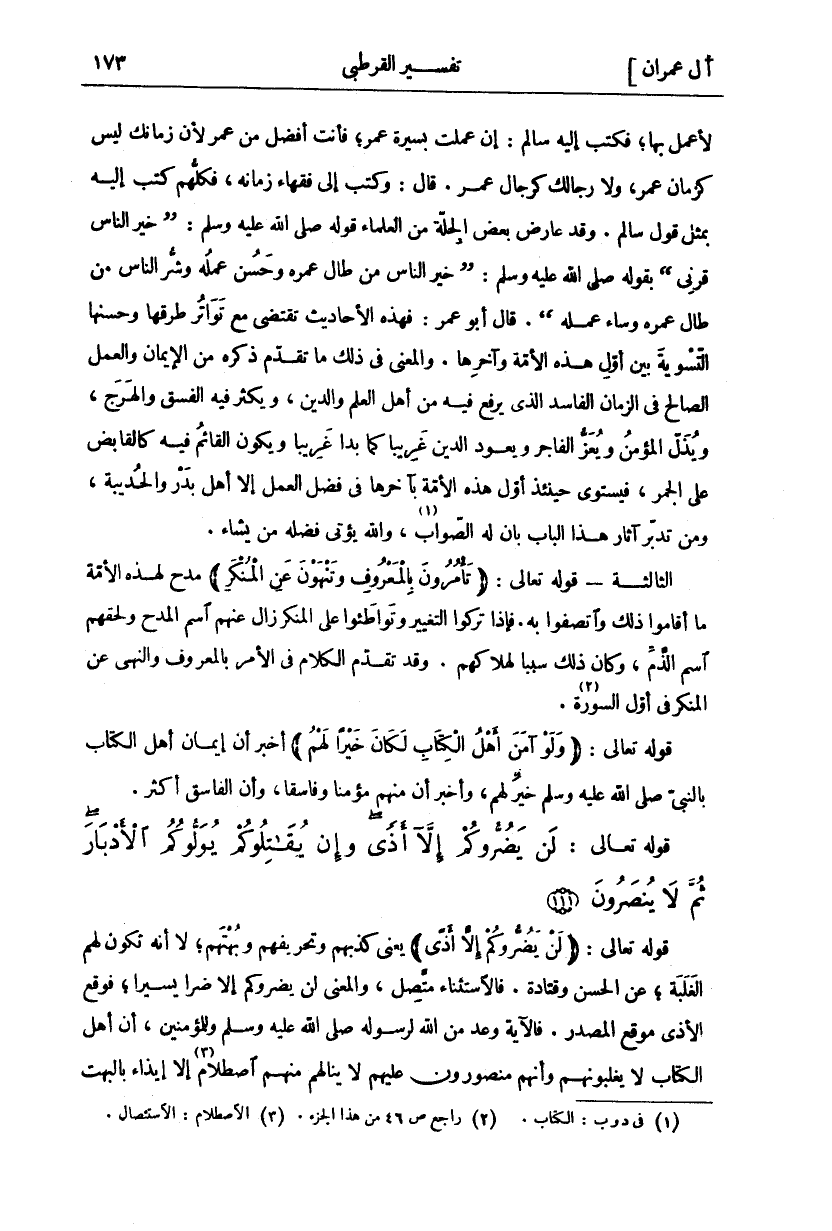 آل عمران] تفسير القرطبى ١٧٣
لأعمل بها؛ فكتب إليه سالم : إن عملت بسيرة عمر؛ فأنت أفضل من عمر لأن زمانك ليس
كزمان عمر، ولا رجالك كرجال عمر . قال : وكتب إلى فقهاء زمانه ، فكلُّهم كتب إليه
بمثل قول سالم . وقد عارض بعض الجِلّة من العلماء قوله صلى الله عليه وسلم : ” خير الناس
قرنى “ بقوله صلى الله عليه وسلم : ” خير الناس من طال عمره وحَسُن عمله وشرُّ الناس من
طال عمره وساء عمله “ . قال أبو عمر : فهذه الأحاديث تقتضى مع تَوَاتُر طرقها وحسنها
التّسْوِيةَ بين أوّلِ هذه الأمّة وآخرِها . والمعنى فى ذلك ما تقدّم ذكره من الإيمان والعمل
الصالح فى الزمان الفاسد الذى يرفع فيه من أهل العلم والدين ، ويكثر فيه الفسق والهَرَج ،
ويُذَلّ المؤمنُ ويُعَزُّ الفاجر ويعود الدين غَرِيبا كما بدا غَرِيبا ويكون القائمُ فيه كالقابض
على الجمر ، فيستوى حينئذ أوّل هذه الأمّة بآخرها فى فضل العمل إلا أهل بَدْر والحُديبة ،
ومن تدبّر آثار هذا الباب بان له الصّواب(١) ، والله يؤتى فضله من يشاء .
الثالثة — قوله تعالى : ﴿ تَأْمُرُونَ بِالْمَعْرُوفِ وَتَنْهَوْنَ عَنِ الْمُنْكَرِ ﴾ مدح لهذه الأمّة
ما أقاموا ذلك وآتصفوا به. فإذا تركوا التغيير وتَواطَئوا على المنكر زال عنهم آسم المدح ولحقهم
آسم الذَّمّ ، وكان ذلك سببا لهلاكهم . وقد تقدّم الكلام فى الأمر بالمعروف والنهى عن
المنكر فى أوّل السورة(٢) .
قوله تعالى : ﴿ وَلَوْ آمَنَ أَهْلُ الْكِتَابِ لَكَانَ خَيْرًا لَهُمْ ﴾ أخبر أن إيمان أهل الكتاب
بالنبىّ صلى الله عليه وسلم خيرٌ لهم، وأخبر أن منهم مؤمنا وفاسقا، وأن الفاسق أكثر .
قوله تعالى : لَن يَضُرُّوكُمْ إِلَّآ أَذًى وَإِن يُقَـٰتِلُوكُمْ يُوَلُّوكُمُ الْأَدْبَارَ
ثُمَّ لَا يُنصَرُونَ ﴿١١١﴾
قوله تعالى : ﴿ لَنْ يَضُرُّوكُمْ إِلَّا أَذًى ﴾ يعنى كذبهم وتحريفهم وبُهْتَهم؛ لا أنه تكون لهم
الغَلَبَة ؛ عن الحسن وقتادة . فالآستثناء متَّصِل ، والمعنى لن يضروكم إلا ضرا يسيرا ؛ فوقع
الأذى موقع المصدر . فالآية وعد من الله لرسوله صلى الله عليه وسلم وللمؤمنين ، أن أهل
الكتاب لا يغلبونهم وأنهم منصورون عليهم لا ينالهم منهم آصطلام(٣) إلا إيذاء بالبهت
(١) فى دوب : الكتاب . (٢) راجع ص ٤٦ من هذا الجزء . (٣) الأصطلام : الأستئصال .